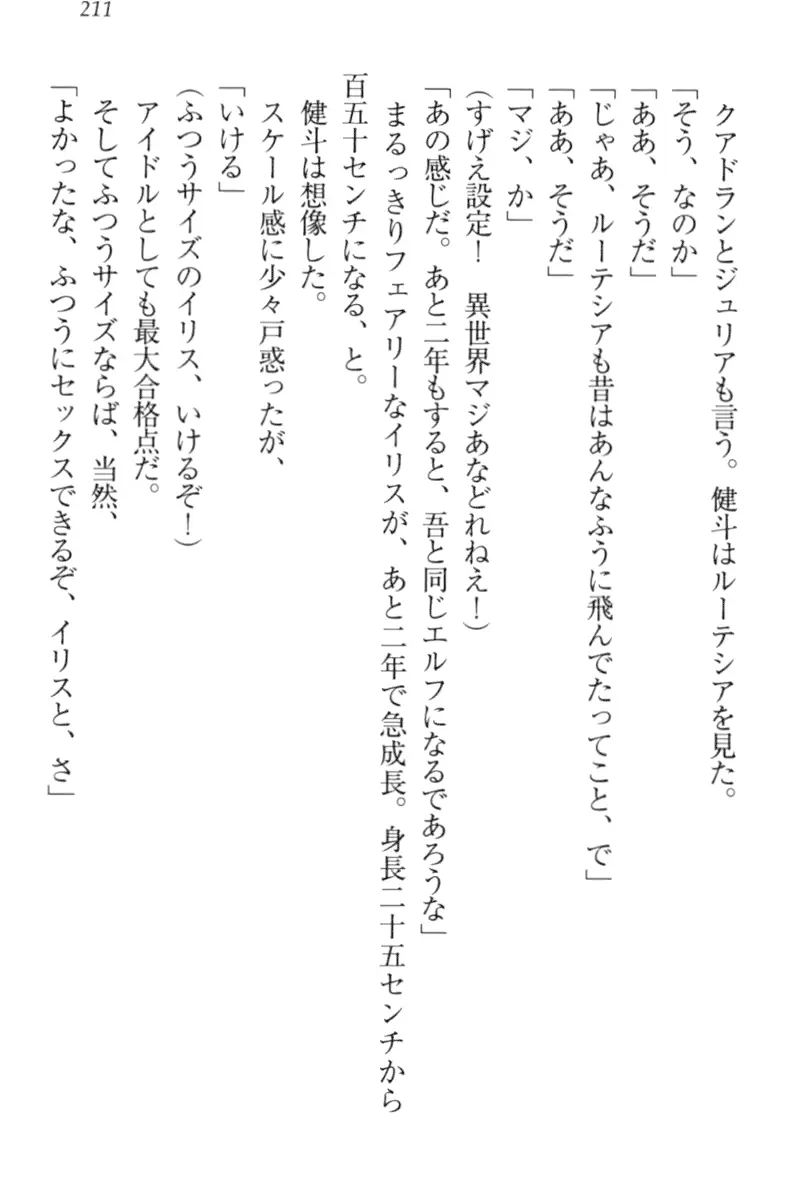 211
クアドランとジュリアも言う。健斗はルーテシアを見た。
「そう、なのか」
「ああ、そうだ」
「じゃあ、ルーテシアも昔はあんなふうに飛んでたってこと、で」
「ああ、そうだ」
「マジ、か」
(すげえ設定！　異世界マジあなどれねえ！)
「あの感じだ。あと二年もすると、吾と同じエルフになるであろうな」
まるっきりフェアリーなイリスが、あと二年で急成長。身長二十五センチから
百五十センチになる、と。
健斗は想像した。
スケール感に少々戸惑ったが、
「いける」
(ふつうサイズのイリス、いけるぞ！)
アイドルとしても最大合格点だ。
そしてふつうサイズならば、当然、
「よかったな、ふつうにセックスできるぞ、イリスと、さ」